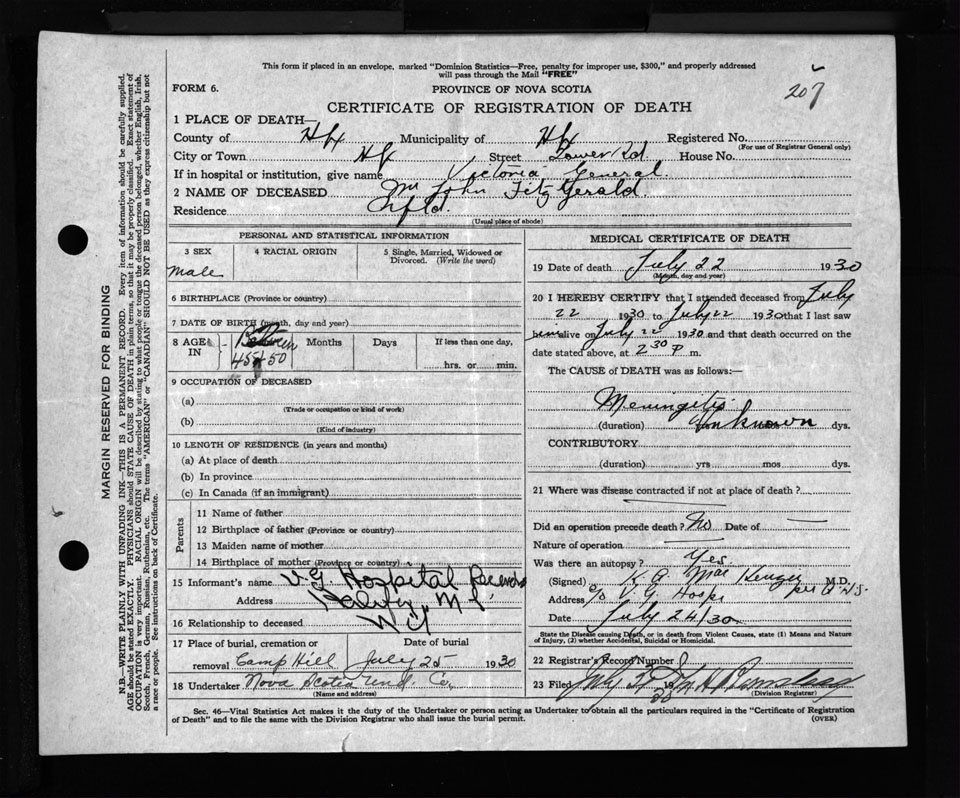 This form if placed in an envelope, marked "Dominion Statistics—Free, penalty for improper use, $300," and properly addressed
will pass through the Mail "FREE"
FORM 6.
PROVINCE OF NOVA SCOTIA
207
CERTIFICATE OF REGISTRATION OF DEATH
1 PLACE OF DEATH—
County of Hfx Municipality of Hfx Registered No.
(For use of Registrar General only)
City or Town Hfx Street Tower Rd. House No.
If in hospital or institution, give name Victoria General.
2 NAME OF DECEASED Mr John FitzGerald
Residence Nfld.
(Usual place of abode)
PERSONAL AND STATISTICAL INFORMATION
3 SEX
Male
4 RACIAL ORIGIN
5 Single, Married, Widowed or
Divorced. (Write the word)
6 BIRTHPLACE (Province or country)
7 DATE OF BIRTH (month, day and year)
8 AGE IN
Between
45 50
Months
Days
If less than one day,
hrs. or min.
9 OCCUPATION OF DECEASED
(a)
(Trade or occupation or kind of work)
(b)
(Kind of industry)
10 LENGTH OF RESIDENCE (in years and months)
(a) At place of death
(b) In province
(c) In Canada (if an immigrant)
Parents
11 Name of father
12 Birthplace of father (Province or country)
13 Maiden name of mother
14 Birthplace of mother (Province or country)
15 Informant's name V.G Hospital Records
Address
16 Relationship to deceased
17 Place of burial, cremation or
removal Camp Hill
Date of burial
July 25 1930
18 Undertaker Nova Scotia Und. Co.
(Name and address)
MEDICAL CERTIFICATE OF DEATH
19 Date of death July 22 1930
(Month, day and year)
20 I HEREBY CERTIFY that I attended deceased from July
22 1930 to July 22 1930 that I last saw
him alive on July 22 1930 and that death occurred on the
date stated above, at 2 30 P m.
The CAUSE of DEATH was as follows:—
Meningitis
(duration) Unknown dys.
CONTRIBUTORY
(duration) yrs mos dys.
21 Where was disease contracted if not at place of death?
Did an operation precede death? No Date of —
Nature of operation —
Was there an autopsy? Yes.
(Signed) K. A. MacKenzie M.D.
Address c/o V. G. Hosp.
Date July 24/30
State the Disease causing Death, or in death from Violent Causes, state (1) Means and Nature
of Injury, (2) whether Accidental, Suicidal or Homicidal.
22 Registrar's Record Number
23 Filed July
(Division Registrar)
Sec. 46—Vital Statistics Act makes it the duty of the Undertaker or person acting as Undertaker to obtain all the particulars required in the "Certificate of Registration
of Death" and to file the same with the Division Registrar who shall issue the burial permit.
(OVER)
MARGIN RESERVED FOR BINDING
N.B.—WRITE PLAINLY WITH UNFADING INK—THIS IS A PERMANENT RECORD. Every item of information should be carefully supplied.
AGE should be stated EXACTLY. PHYSICIANS should STATE CAUSE OF DEATH in plain terms, so that it may be properly classified. Exact statement of
OCCUPATION is very important. RACIAL ORIGIN will be described by stating to what people or tongue the deceased person belonged, whether English, Irish,
Scotch, French, German, Russian, Ruthenian, etc. The terms "AMERICAN" or "CANADIAN" SHOULD NOT BE USED as they express citizenship but not
a race or people. See instructions on back of Certificate.